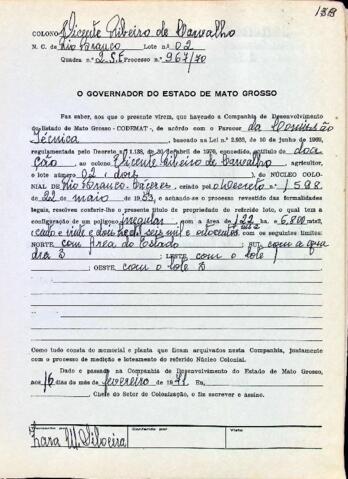 COLONO Vicente Ribeiro de Carvalho
N. C. de Rio Branco Lote n.º 02
Quadra n.º 2. S.E Processo n.º 967/70
O GOVERNADOR DO ESTADO DE MATO GROSSO
Faz saber, aos que o presente virem, que havendo a Companhia de Desenvolvimento
do Estado de Mato Grosso - CODEMAT -, de acôrdo com o Parecer da Comissão
Técnica, baseado na Lei n.º
regulamentada pelo Decreto n.º 1.138, de de abril de concedido, o título de doa
ção, ao colono Vicente Ribeiro de Carvalho, agricultor,
o lote número 02 (dois), do NÚCLEO COLO-
NIAL DE Rio Branco - Cáceres, criado pelo Decreto n.º 1.598
de 22 maio de 1953, e achando-se o processo revestido das formalidades
legais, resolveu conferir-lhe o presente título de propriedade do referido lote, o qual tem a
configuração de um polígono irregular com a área de 122 ha. e 6.800 mts2
(cento e vinte e dois seis mil e oitocentos mts2 com os seguintes limites:
NORTE com Área do Estado; SUL com a qua
dra 3; LESTE com o lote 1
OESTE com o lote 3
Como tudo consta do memorial e planta que ficam arquivados nesta Companhia, juntamente
com o processo de medição e loteamento do referido Núcleo Colonial.
Dado e passado na Companhia de Desenvolvimento do Estado de Mato Grosso,
aos 16 dias do mês de fevereiro de 1971 Eu,
Chefe do Setor de Colonização, o fiz escrever e assino.
Conferido por
Visto
Silveira